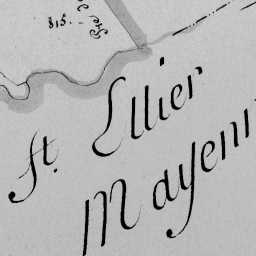 815.
St. Ellier
Mayenn